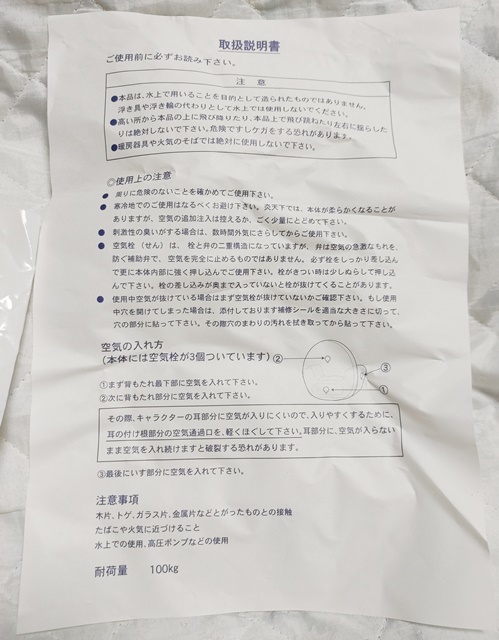 取扱説明書
ご使用前に必ずお読み下さい。
注 意
●本品は、水上で用いることを目的として造られたものではありません。
浮き具や浮き輪の代わりとして水上では使用しないでください。
●高い所から本品の上に飛び降りたり、本品上で飛び跳ねたり左右に揺らした
りは絶対しないで下さい。危険ですしケガをする恐れがあります。
●暖房器具や火気のそばでは絶対に使用しないで下さい。
◎使用上の注意
● 周りに危険のないことを確かめてご使用下さい。
● 寒冷地でのご使用はなるべくお避け下さい。炎天下では、本体が柔らかくなることが
ありますが、空気の追加注入は控えるか、ごく少量にとどめて下さい。
● 刺激性の臭いがする場合は、数時間外気にさらしてからご使用下さい。
● 空気栓(せん)は、栓と弁の二重構造になっていますが、弁は空気の急激なもれを、
防ぐ補助弁で、空気を完全に止めるものではありません。必ず栓をしっかり差し込ん
で更に本体内部に強く押し込んでご使用下さい。栓がきつい時は少しぬらして押し込
んで下さい。栓の差し込みが奥まで入っていないと栓が抜けてくることがあります。
● 使用中空気が抜けている場合はまず空気栓が抜けていないかご確認下さい。もし使用
中穴を開けてしまった場合は、添付しております補修シールを適当な大きさに切って、
穴の部分に貼って下さい。その際穴のまわりの汚れを拭き取ってから貼って下さい。
空気の入れ方
(本体には空気栓が3個ついています)②
③
①
①まず背もたれ最下部に空気を入れて下さい。
②次に背もたれ部分に空気を入れて下さい。
その際、キャラクターの耳部分に空気が入りにくいので、入りやすくするために、
耳の付け根部分の空気通過口を、軽くほぐして下さい。耳部分に、空気が入らない
まま空気を入れ続けますと破裂する恐れがあります。
③最後にいす部分に空気を入れて下さい。
注意事項
木片、トゲ、ガラス片、金属片などとがったものとの接触
たばこや火気に近づけること
水上での使用、高圧ポンプなどの使用
耐荷量 100kg